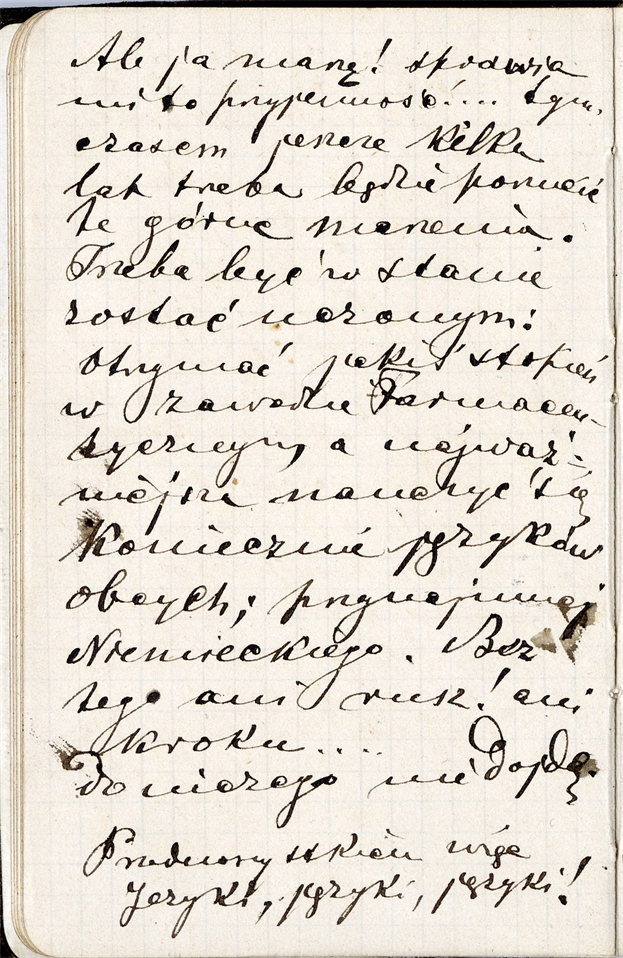 Ale ja marzę! sprawia
mi to przyjemność!... tym-
czasem jeszcze kilka
lat trzeba będzie porzucić
te górne marzenia.
Trzeba być w stanie
zostać uczonym:
otrzymać jakiś stopień
w zawodzie Farmaceu-
tycznym, a najważ-
niejsza nauczyć się
koniecznie języków
obcych; przynajmniej
Niemieckiego. Bez
tego ani rusz! ani
kroku....
do niczego nie dojdę.
Przedewszystkiem więc
Języki, języki, języki!